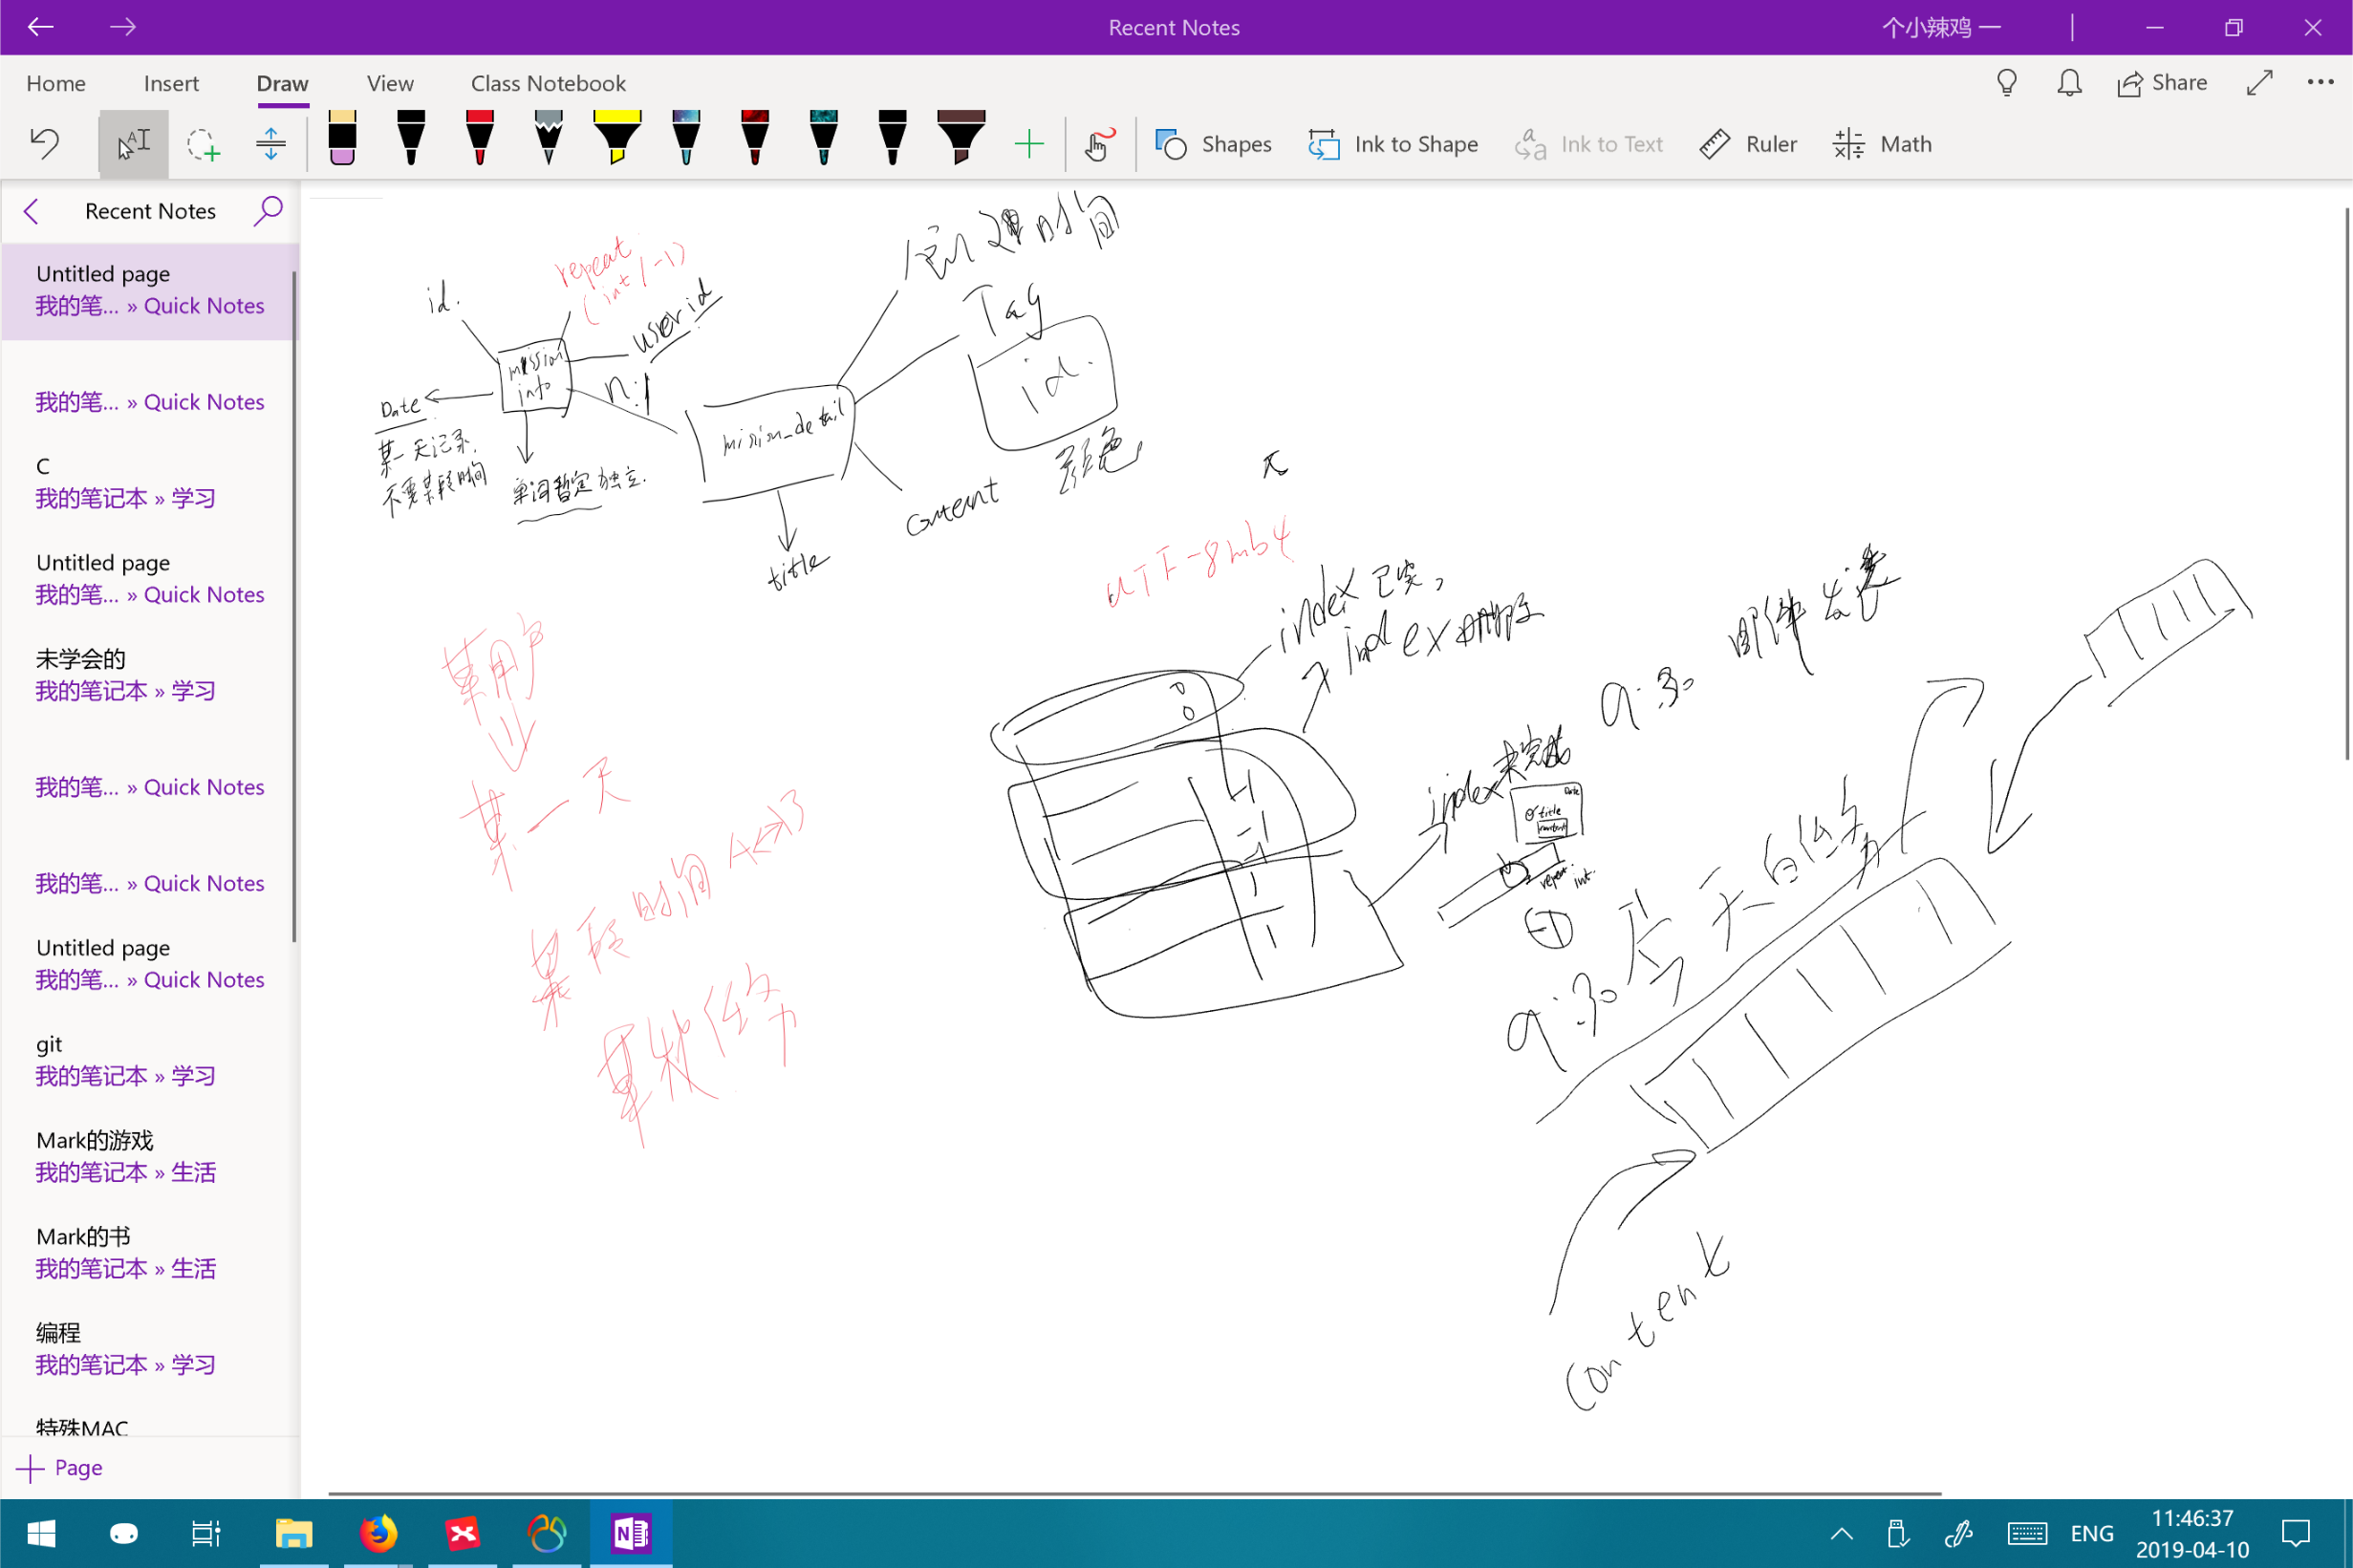 Recent Notes
个小辣鸡 一
Home Insert Draw View Class Notebook
Share
Shapes Ink to Shape Ink to Text Ruler Math
Recent Notes
Untitled page
我的笔... » Quick Notes
我的笔... » Quick Notes
C
我的笔记本 » 学习
Untitled page
我的笔... » Quick Notes
未学会的
我的笔记本 » 学习
我的笔... » Quick Notes
我的笔... » Quick Notes
Untitled page
我的笔... » Quick Notes
git
我的笔记本 » 学习
Mark的游戏
我的笔记本 » 生活
Mark的书
我的笔记本 » 生活
编程
我的笔记本 » 学习
特殊MAC
Page
id.
repeat
(int/-1)
userid
mission
info
n:1
Date
某一天记录
不要某段时间
单词暂定独立.
mission_detail
title
创建时间
Tag
id.
颜色
content
UTF-8mb4
某用户
某一天
某段时间 A<->B
单次任务
index 已完,
index
index 未完成
0
0
-1
-1
-1
1
1
1
Date
title
content
repeat int.
-1
9:30 邮件发送
9:30 今天的任务
content
ENG
11:46:37
2019-04-10